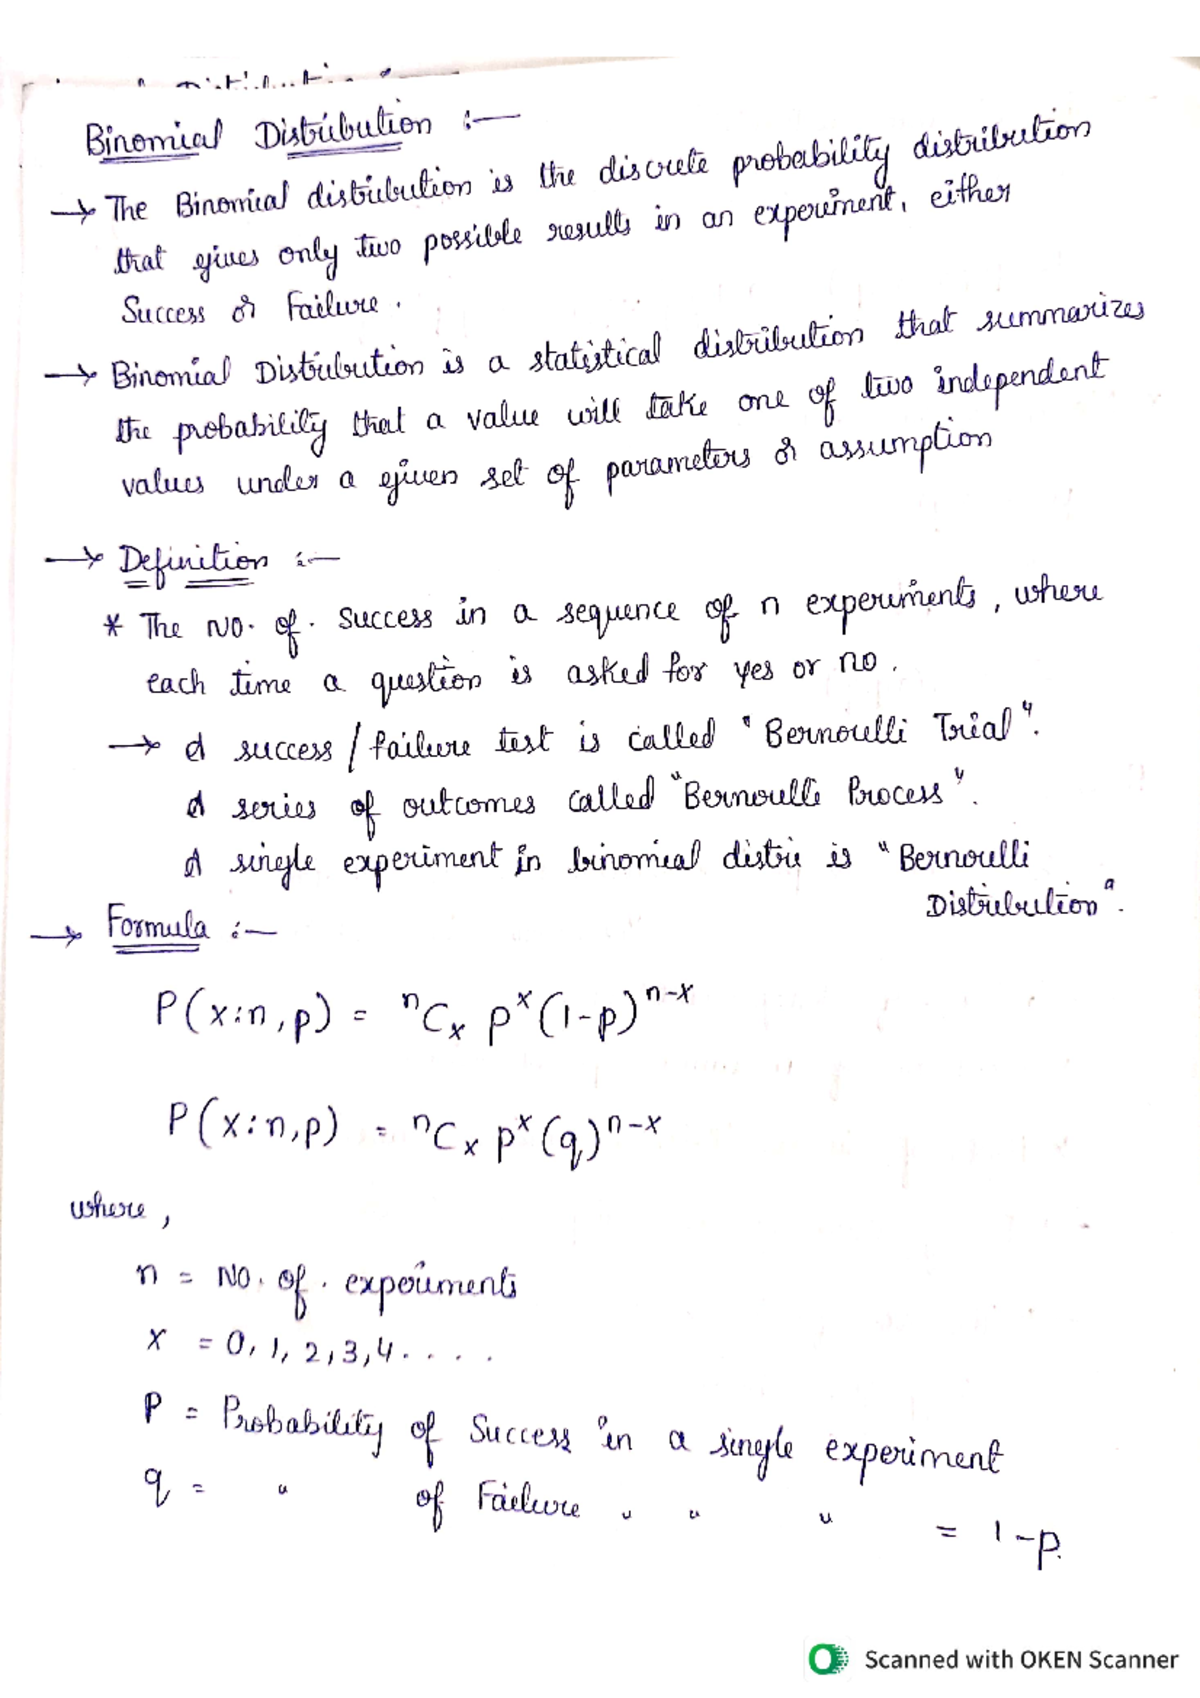 Binomial Distribution :—
→ The Binomial distribution is the discrete probability distribution
that gives only two possible results in an experiment, either
Success or Failure.
→ Binomial Distribution is a statistical distribution that summarizes
the probability that a value will take one of two independent
values under a given set of parameters or assumption
→ Definition :—
* The No. of. Success in a sequence of n experiments, where
each time a question is asked for yes or no.
→ A success / failure test is called "Bernoulli Trial".
A series of outcomes called "Bernoulli Process".
A single experiment in binomial distri is "Bernoulli
Distribution".
→ Formula :—
P(x:n,p) = ⁿCₓ pˣ(1-p)ⁿ⁻ˣ
P(x:n,p) = ⁿCₓ pˣ(q)ⁿ⁻ˣ
where,
n = No. of. experiments
x = 0, 1, 2, 3, 4 . . . .
P = Probability of Success in a single experiment
q = " of Failure " " " = 1-p.
Scanned with OKEN Scanner